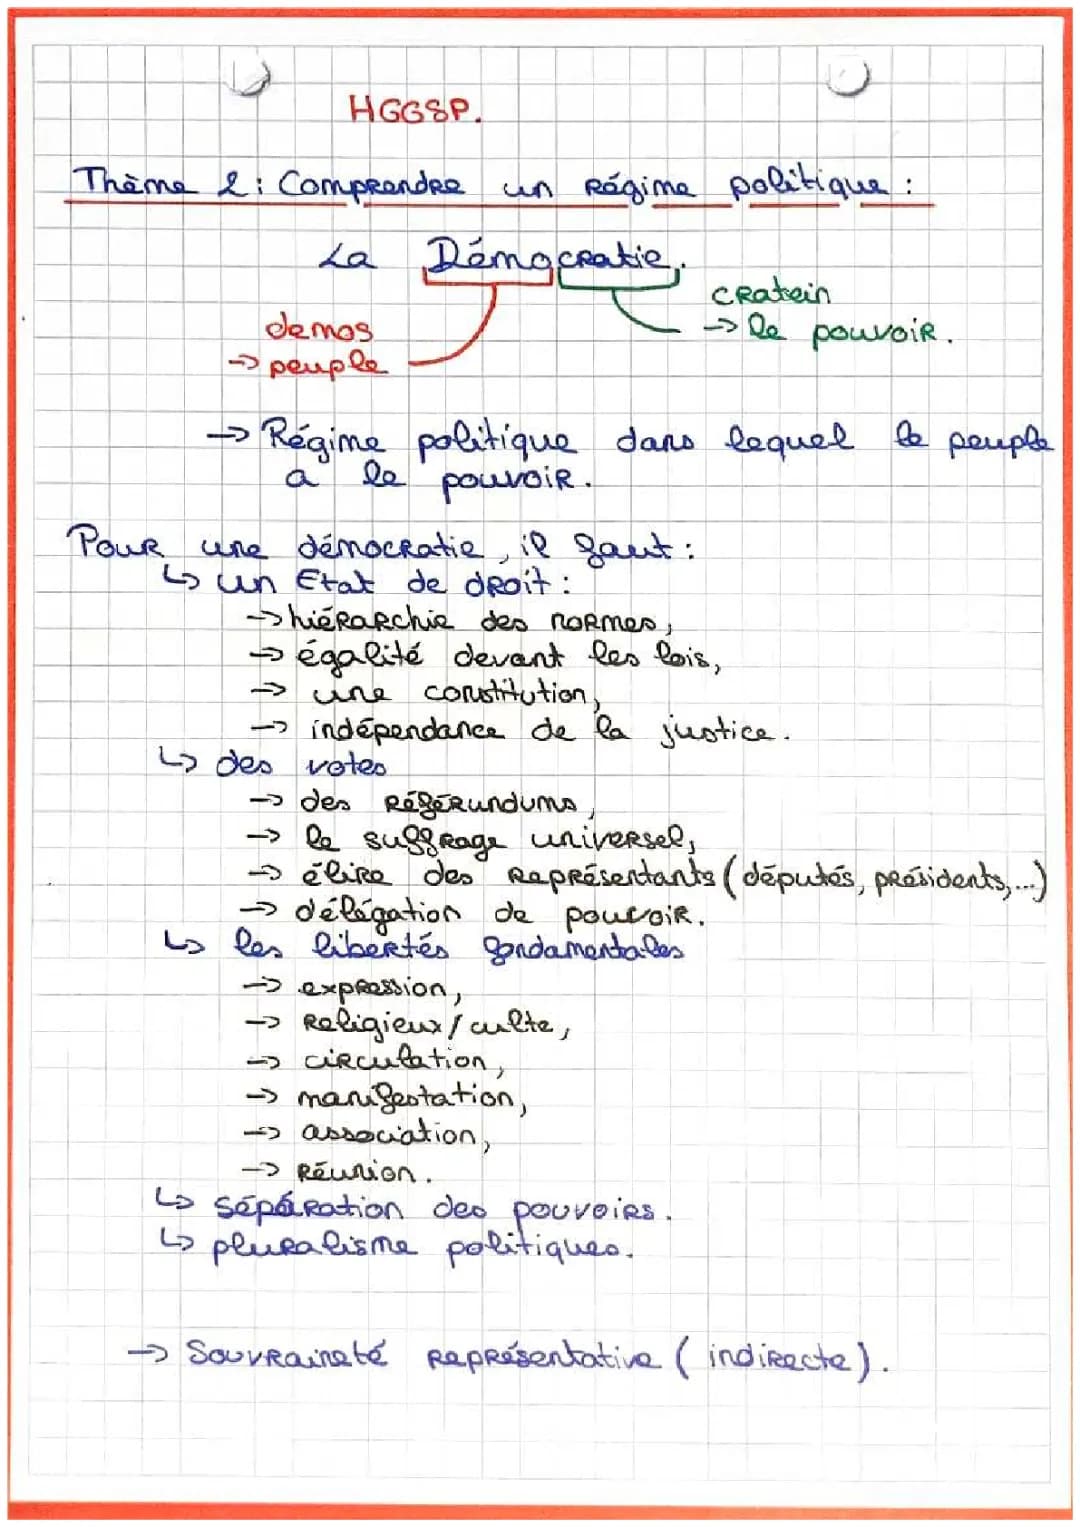 HGGSP.
Thème 2 : Comprendre un régime politique :
La Démocratie.
cratein
→ le pouvoir.
demos
→ peuple
→ Régime politique dans lequel le peuple
a le pouvoir.
Pour une démocratie, il faut :
↳ un Etat de droit :
→ hiérarchie des normes,
→ égalité devant les lois,
→ une constitution,
→ indépendance de la justice.
↳ des votes
→ des référundums,
→ le suffrage universel,
→ élire des représentants (députés, présidents,...)
→ délégation de pouvoir.
↳ les libertés fondamentales
→ expression,
→ religieux / culte,
→ circulation,
→ manifestation,
→ association,
→ réunion.
↳ sépáration des pouvoirs.
↳ pluralisme politiques.
→ Souvraineté représentative (indirecte).